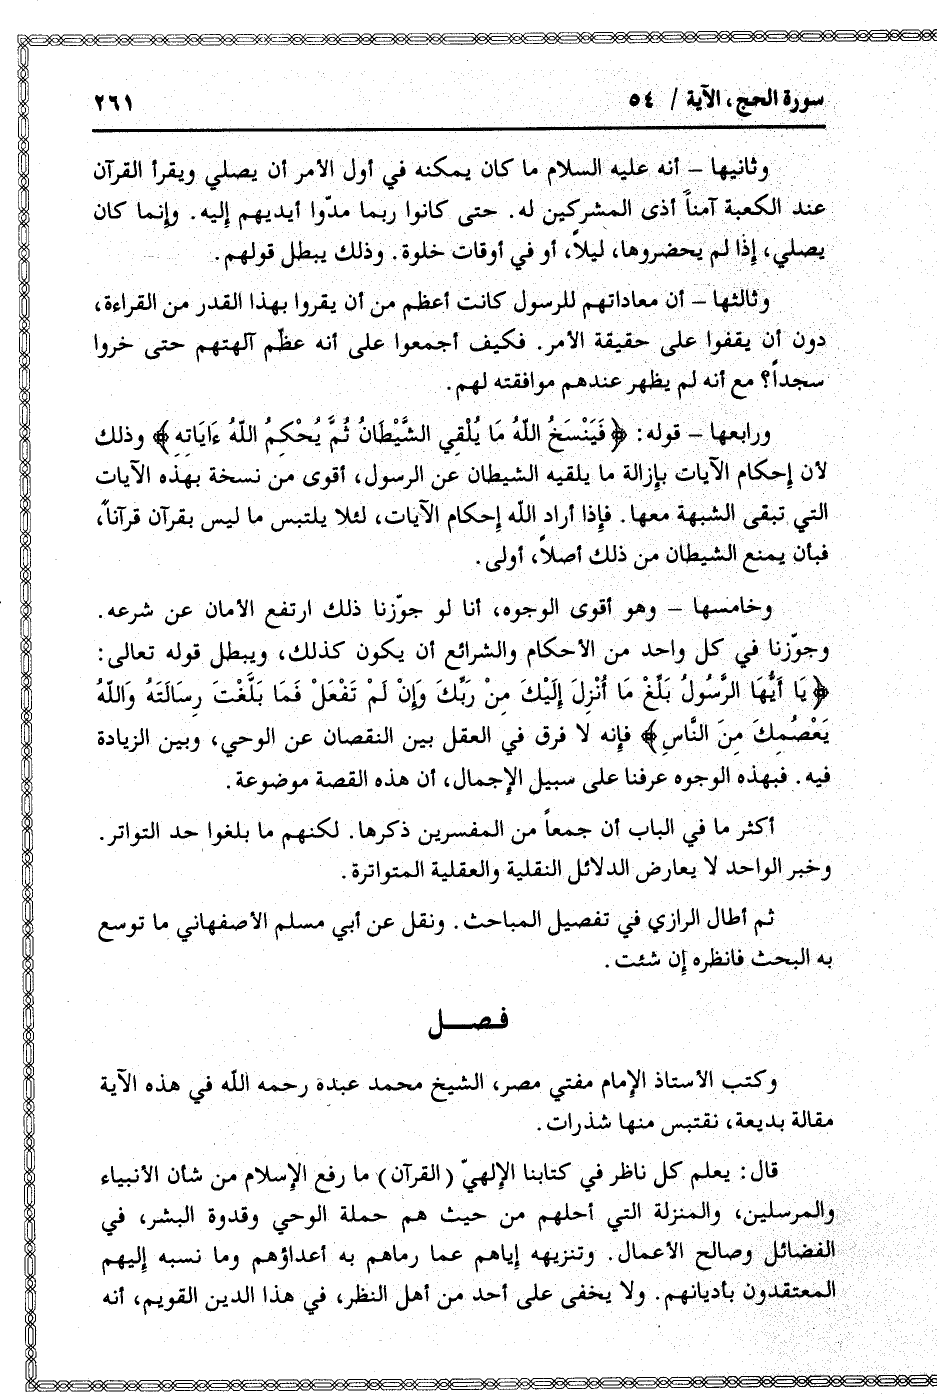 سورة الحج، الآية / ٥٤
٢٦١
وثانيها – أنه عليه السلام ما كان يمكنه في أول الأمر أن يصلي ويقرأ القرآن
عند الكعبة آمناً أذى المشركين له. حتى كانوا ربما مدّوا أيديهم إليه. وإنما كان
يصلي، إذا لم يحضروها، ليلاً، أو في أوقات خلوة. وذلك يبطل قولهم.
وثالثها – أن معاداتهم للرسول كانت أعظم من أن يقروا بهذا القدر من القراءة،
دون أن يقفوا على حقيقة الأمر. فكيف أجمعوا على أنه عظّم آلهتهم حتى خروا
سجداً؟ مع أنه لم يظهر عندهم موافقته لهم.
ورابعها – قوله: ﴿فَيَنْسَخُ اللّهُ مَا يُلْقِي الشَّيْطَانُ ثُمَّ يُحْكِمُ اللّهُ ءَايَاتِهِ﴾ وذلك
لأن إحكام الآيات بإزالة ما يلقيه الشيطان عن الرسول، أقوى من نسخة بهذه الآيات
التي تبقى الشبهة معها. فإذا أراد اللّه إحكام الآيات، لئلا يلتبس ما ليس بقرآن قرآناً،
فبأن يمنع الشيطان من ذلك أصلاً، أولى.
وخامسها – وهو أقوى الوجوه، أنا لو جوّزنا ذلك ارتفع الأمان عن شرعه.
وجوّزنا في كل واحد من الأحكام والشرائع أن يكون كذلك، ويبطل قوله تعالى:
﴿يَا أَيُّهَا الرَّسُولُ بَلِّغْ مَا أُنْزِلَ إِلَيْكَ مِنْ رَبِّكَ وَإِنْ لَمْ تَفْعَلْ فَمَا بَلَّغْتَ رِسَالَتَهُ وَاللّهُ
يَعْصُمِكَ مِنَ النَّاسِ﴾ فإنه لا فرق في العقل بين النقصان عن الوحي، وبين الزيادة
فيه. فبهذه الوجوه عرفنا على سبيل الإجمال، أن هذه القصة موضوعة.
أكثر ما في الباب أن جمعاً من المفسرين ذكرها. لكنهم ما بلغوا حد التواتر.
وخبر الواحد لا يعارض الدلائل النقلية والعقلية المتواترة.
ثم أطال الرازي في تفصيل المباحث. ونقل عن أبي مسلم الأصفهاني ما توسع
به البحث فانظره إن شئت.
فصل
وكتب الأستاذ الإمام مفتي مصر، الشيخ محمد عبدة رحمه اللّه في هذه الآية
مقالة بديعة، نقتبس منها شذرات.
قال: يعلم كل ناظر في كتابنا الإلهيّ (القرآن) ما رفع الإسلام من شأن الأنبياء
والمرسلين، والمنزلة التي أحلهم من حيث هم حملة الوحي وقدوة البشر، في
الفضائل وصالح الأعمال. وتنزيهه إياهم عما رماهم به أعداؤهم وما نسبه إليهم
المعتقدون بأديانهم. ولا يخفى على أحد من أهل النظر، في هذا الدين القويم، أنه